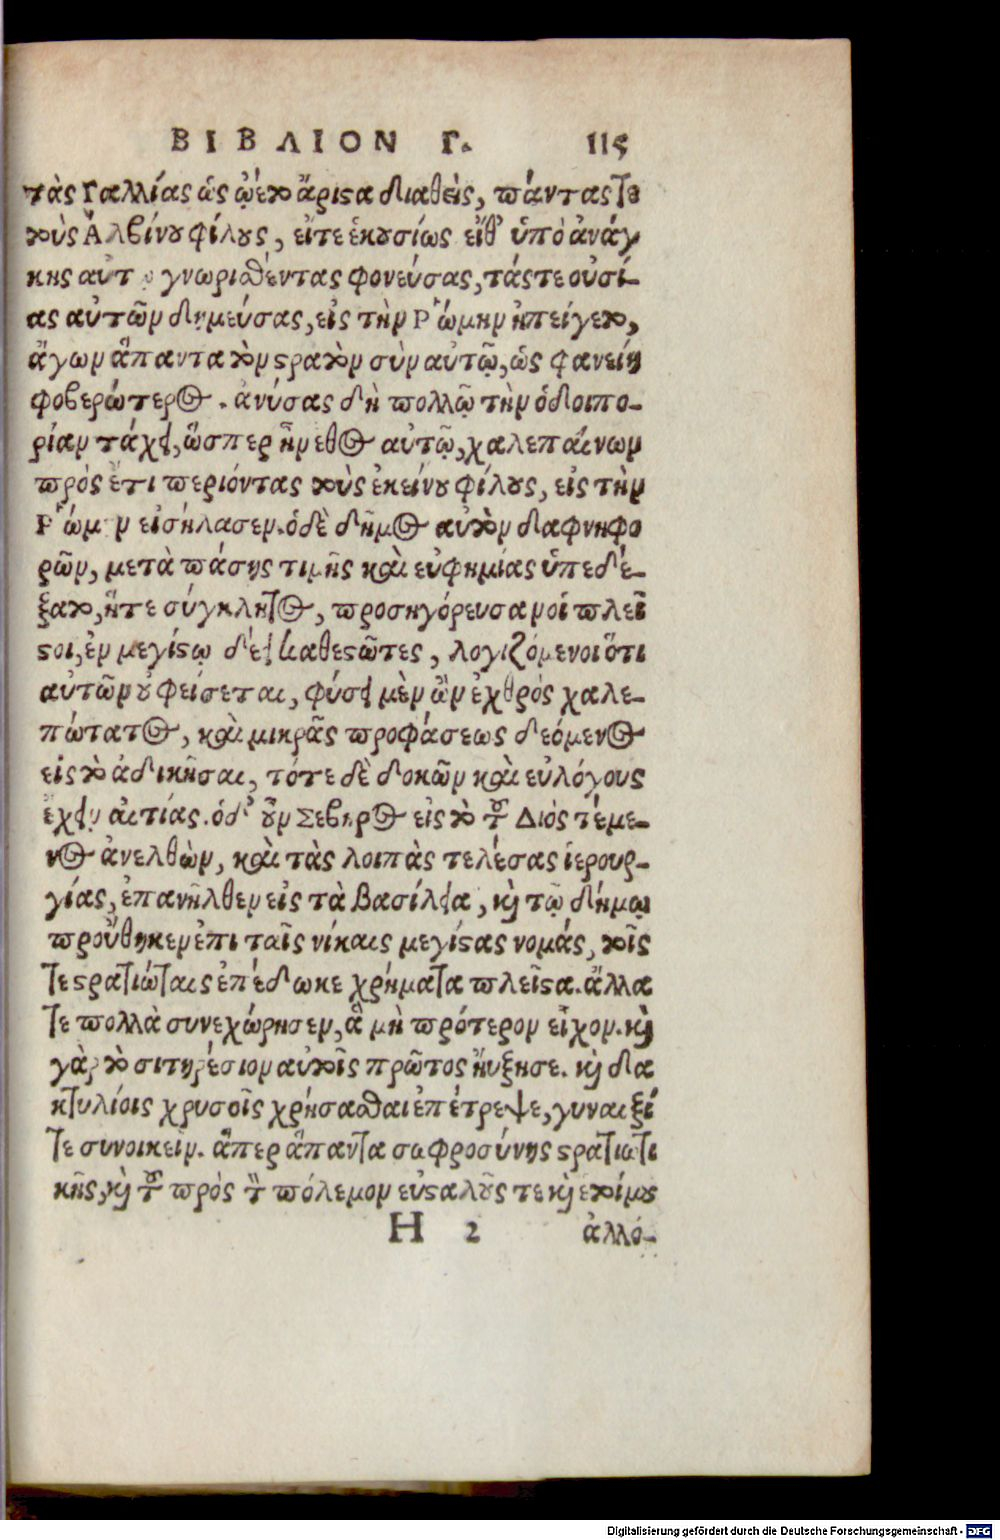 ΒΙΒΛΙΟΝ Γ. 115
τὰς Γαλλίας ὡς ᾤετο ἄριστα διαθεὶς, πάντας τε
τοὺς Ἀλβίνου φίλους, εἴτε ἑκουσίως εἴθ' ὑπὸ ἀνάγ
κης αὐτ γνωρισθέντας φονεύσας, τάς τε οὐσί-
ας αὐτῶν δημεύσας, εἰς τὴν Ῥώμην ἠπείγετο,
ἄγων ἅπαντα τὸν στρατὸν σὺν αὐτῷ, ὡς φανείη
φοβερώτερος. ἀνύσας δὴ πολλῷ τὴν ὁδοιπο-
ρίαν τάχει, ὥσπερ ἦν ἔθος αὐτῷ, χαλεπαίνων
πρὸς ἔτι περιόντας τοὺς ἐκείνου φίλους, εἰς τὴν
Ῥώμ ν εἰσήλασεν. ὁ δὲ δῆμος αὐτὸν δαφνηφο
ρῶν, μετὰ πάσης τιμῆς καὶ εὐφημίας ὑπεδέ-
ξατο, ἥτε σύγκλητος, προσηγόρευσαν οἱ πλεῖ
στοι, ἐν μεγίστῳ δέει καθεστῶτες, λογιζόμενοι ὅτι
αὐτῶν οὐ φείσεται, φύσει μὲν ὢν ἐχθρὸς χαλε-
πώτατος, καὶ μικρᾶς προφάσεως δεόμενος
εἰς τὸ ἀδικῆσαι, τότε δὲ δοκῶν καὶ εὐλόγους
ἔχειν αἰτίας. ὁ δ' οὖν Σεβῆρος εἰς τὸ τοῦ Διός τέμε-
νος ἀνελθὼν, καὶ τὰς λοιπὰς τελέσας ἱερουρ-
γίας, ἐπανῆλθεν εἰς τὰ βασίλεια, καὶ τῷ δήμῳ
προὔθηκεν ἐπι ταῖς νίκαις μεγίστας νομάς, τοῖς
τε στρατιώταις ἐπέδωκε χρήματα πλεῖστα. ἄλλα
τε πολλὰ συνεχώρησεν, ἃ μὴ πρότερον εἶχον. καὶ
γὰρ τὸ σιτηρέσιον αὐτοῖς πρῶτος ηὔξησε. καὶ δα
κτυλίοις χρυσοῖς χρήσασθαι ἐπέτρεψε, γυναιξί
τε συνοικεῖν. ἅπερ ἅπαντα σωφροσύνης στρατιωτι
κῆς, καὶ τοῦ πρὸς τὸν πόλεμον εὐσταλοῦς τε καὶ ἑτοίμου
Η 2 ἀλλό-
Digitalisierung gefördert durch die Deutsche Forschungsgemeinschaft - DFG